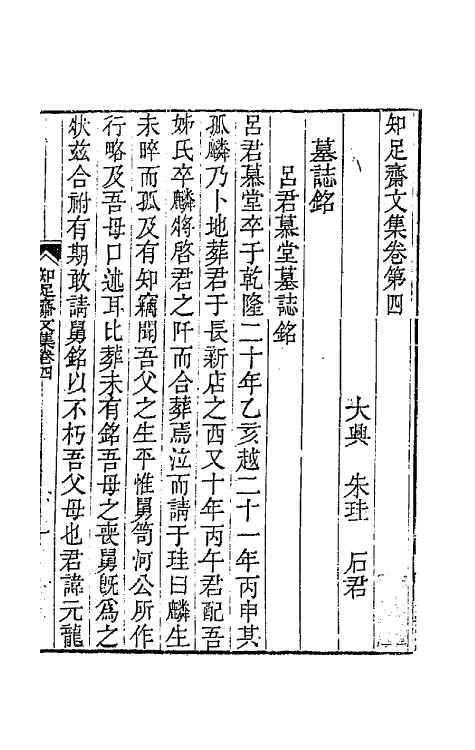 知足齋文集卷第四
大興　朱珪　石君
墓誌銘
呂君慕堂墓誌銘
呂君慕堂卒于乾隆二十年乙亥越二十一年丙申其
孤麟乃卜地葬君于長新店之西又十年丙午君配吾
姊氏卒麟將啓君之阡而合葬焉泣而請于珪曰麟生
未晬而孤及有知竊聞吾父之生平惟舅笥河公所作
行略及吾母口述耳比葬未有銘吾母之喪舅旣爲之
狀茲合祔有期敢請舅銘以不朽吾父母也君諱元龍
知足齋文集卷四
一